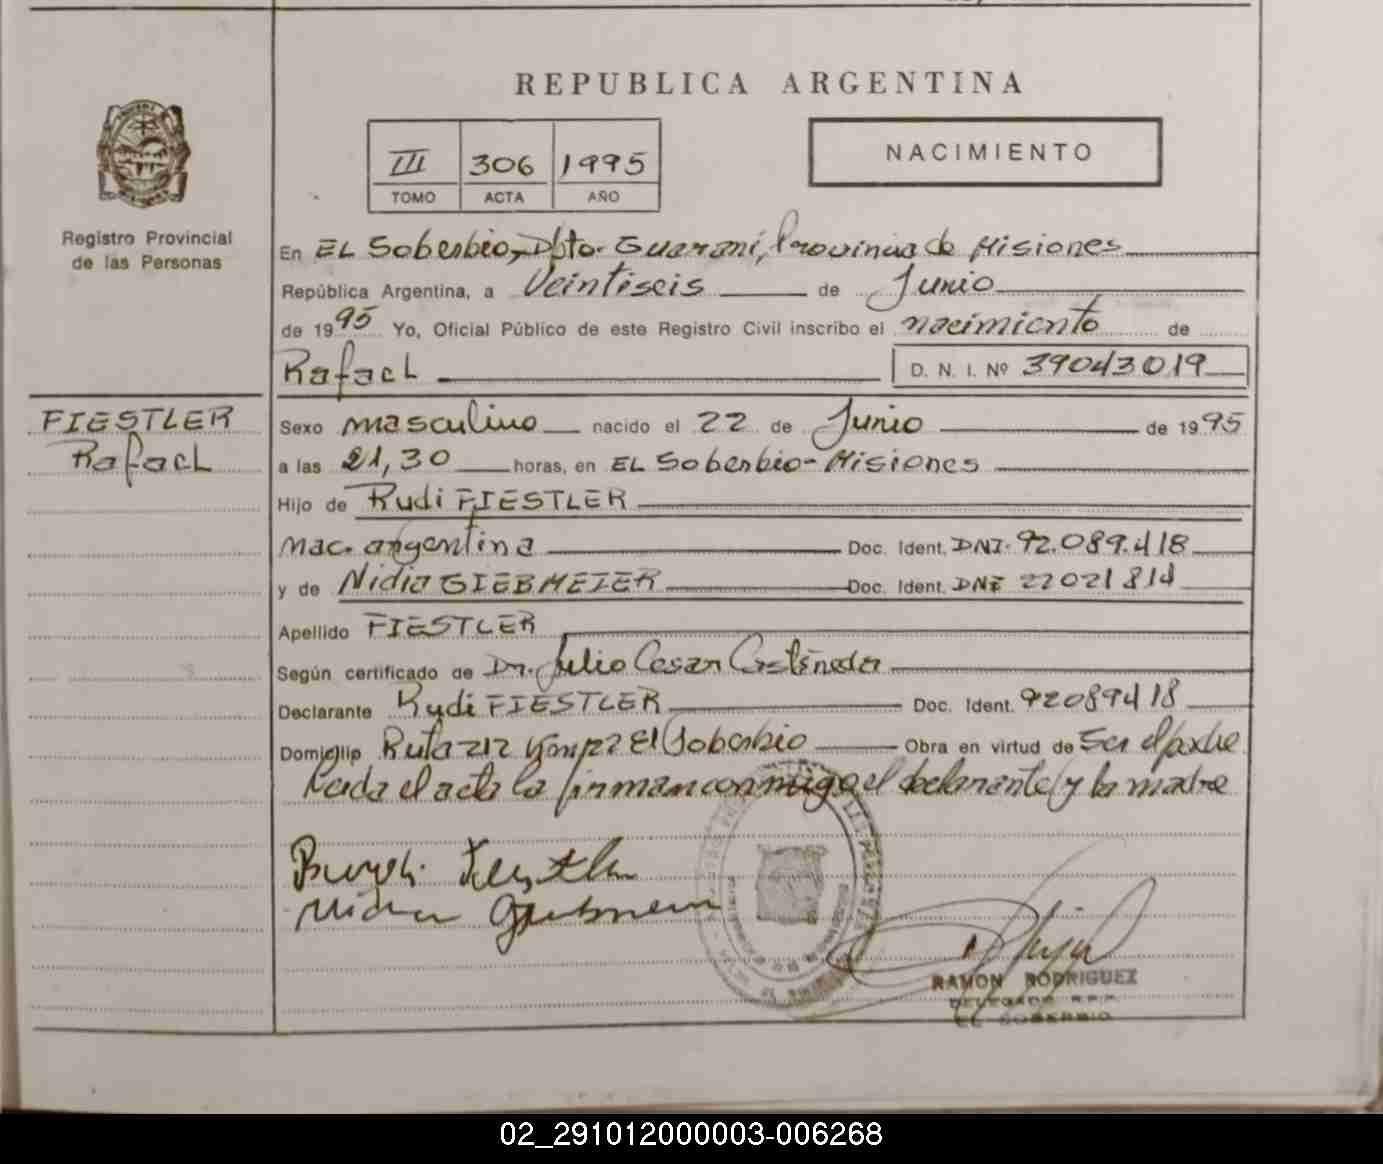 REPUBLICA ARGENTINA
III 306 1995
TOMO ACTA AÑO
NACIMIENTO
Registro Provincial
de las Personas
En EL Soberbio, Dpto. Guaraní, Provincia de Misiones
República Argentina, a Veintiseis de Junio
de 1995 Yo, Oficial Público de este Registro Civil inscribo el nacimiento de
Rafael D. N. I. Nº 39043019
FIESTLER
Rafael
Sexo masculino nacido el 22 de Junio de 1995
a las 21,30 horas, en EL Soberbio - Misiones
Hijo de Rudi FIESTLER
nac. argentina Doc. Ident. DNI. 92.089.418
y de Nidia GIEBMEIER Doc. Ident. DNI 22021814
Apellido FIESTLER
Según certificado de Dr. Julio Cesar Castañeda
Declarante Rudi FIESTLER Doc. Ident. 92089418
Domicilio Ruta 212 El Soberbio Obra en virtud de Ser el padre
Leida el acta la firman conmigo el declarante y la madre
RAMON RODRIGUEZ
DELEGADO R.P.P.
EL SOBERBIO
02_291012000003-006268